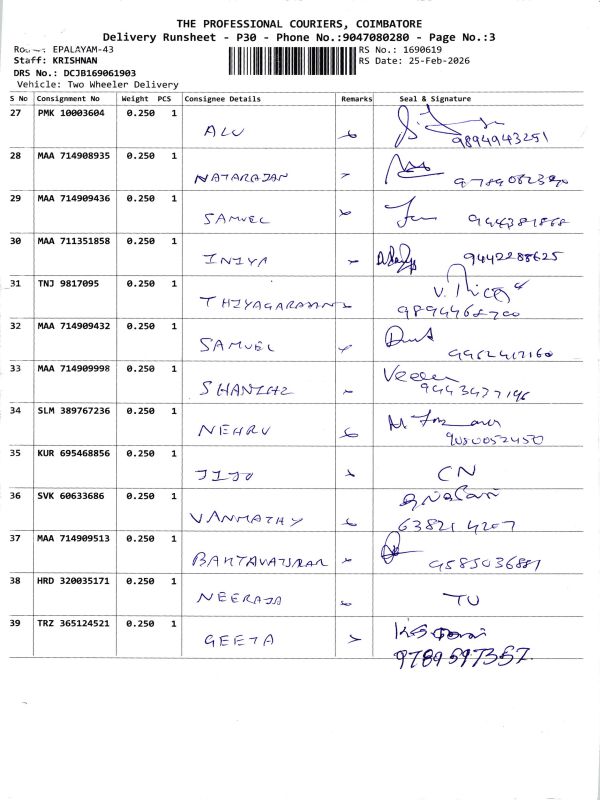 THE PROFESSIONAL COURIERS, COIMBATORE
Delivery Runsheet - P30 - Phone No.:9047080280 - Page No.:3
EPALAYAM-43 RS No.: 1690619
Staff: KRISHNAN RS Date: 25-Feb-2026
DRS No.: DCJB169061903
Vehicle: Two Wheeler Delivery
S No Consignment No Weight PCS Consignee Details Remarks Seal & Signature
27 PMK 10003604 0.250 1 ALU 9894943251
28 MAA 714908935 0.250 1 NATARAJAN
29 MAA 714909436 0.250 1 SAMUEL 9444381868
30 MAA 711351858 0.250 1 INIYA 9442288625
31 TNJ 9817095 0.250 1
32 MAA 714909432 0.250 1 SAMUEL 9962417160
33 MAA 714909998 0.250 1 9443477196
34 SLM 389767236 0.250 1 NEHRU 9080052450
35 KUR 695468856 0.250 1 JIJO CN
36 SVK 60633686 0.250 1 VANMATHY 63821 4207
37 MAA 714909513 0.250 1 9585036881
38 HRD 320035171 0.250 1 NEERAJA TU
39 TRZ 365124521 0.250 1 GEETA 9789597357